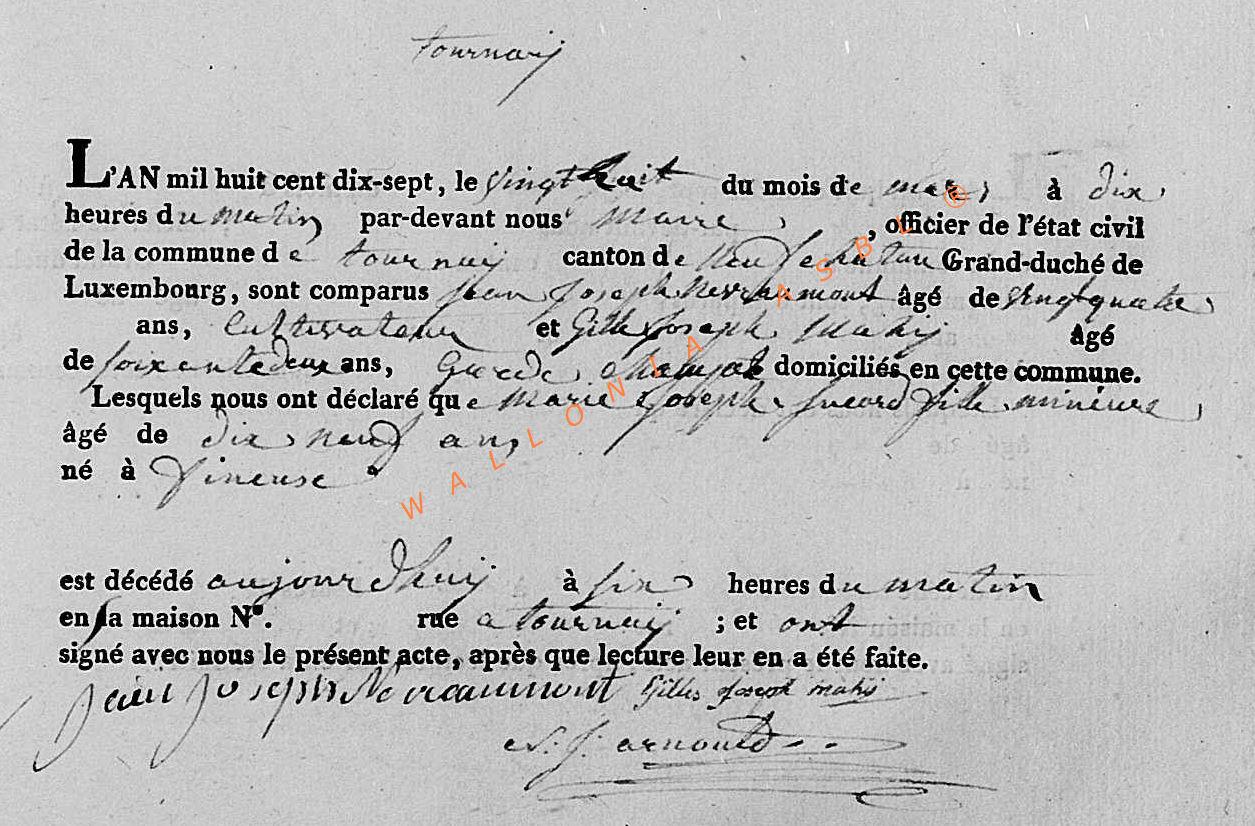 tournaij
L'AN mil huit cent dix-sept, le vingt huit du mois de mars à dix
heures du matin par-devant nous maire, officier de l'état civil
de la commune de tournaij canton de Neufchateau Grand-duché de
Luxembourg, sont comparus jean joseph Nevraumont âgé de vingt quatre
ans, Cultivateur et Gille joseph Mahij âgé
de soixante deux ans, Garde domiciliés en cette commune.
Lesquels nous ont déclaré que marie joseph fille mineure
âgé de dix neuf ans
né à
est décédé aujourd'huij à six heures du matin
en sa maison N°. rue a tournaij ; et ont
signé avec nous le présent acte, après que lecture leur en a été faite.
jean joseph Nevraumont Gilles joseph mahij
j. arnould
WALLONIA ASBL ®